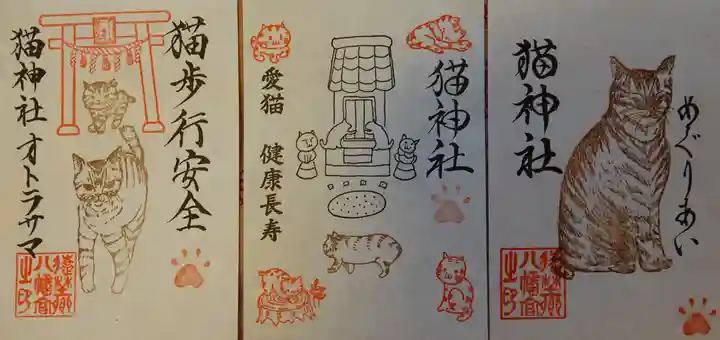 猫歩行安全
猫神社オトラサマ
八幡宮
之印
愛猫 健康長寿
猫神社
猫神社
めぐりあい
八幡宮
之印